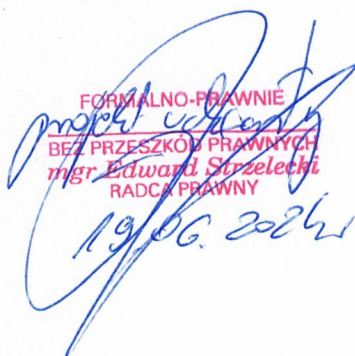 FORMALNO-PRAWNIE
projekt uchwały
BEZ PRZESZKÓD PRAWNYCH
mgr Edward Strzelecki
RADCA PRAWNY
19.06.2024r